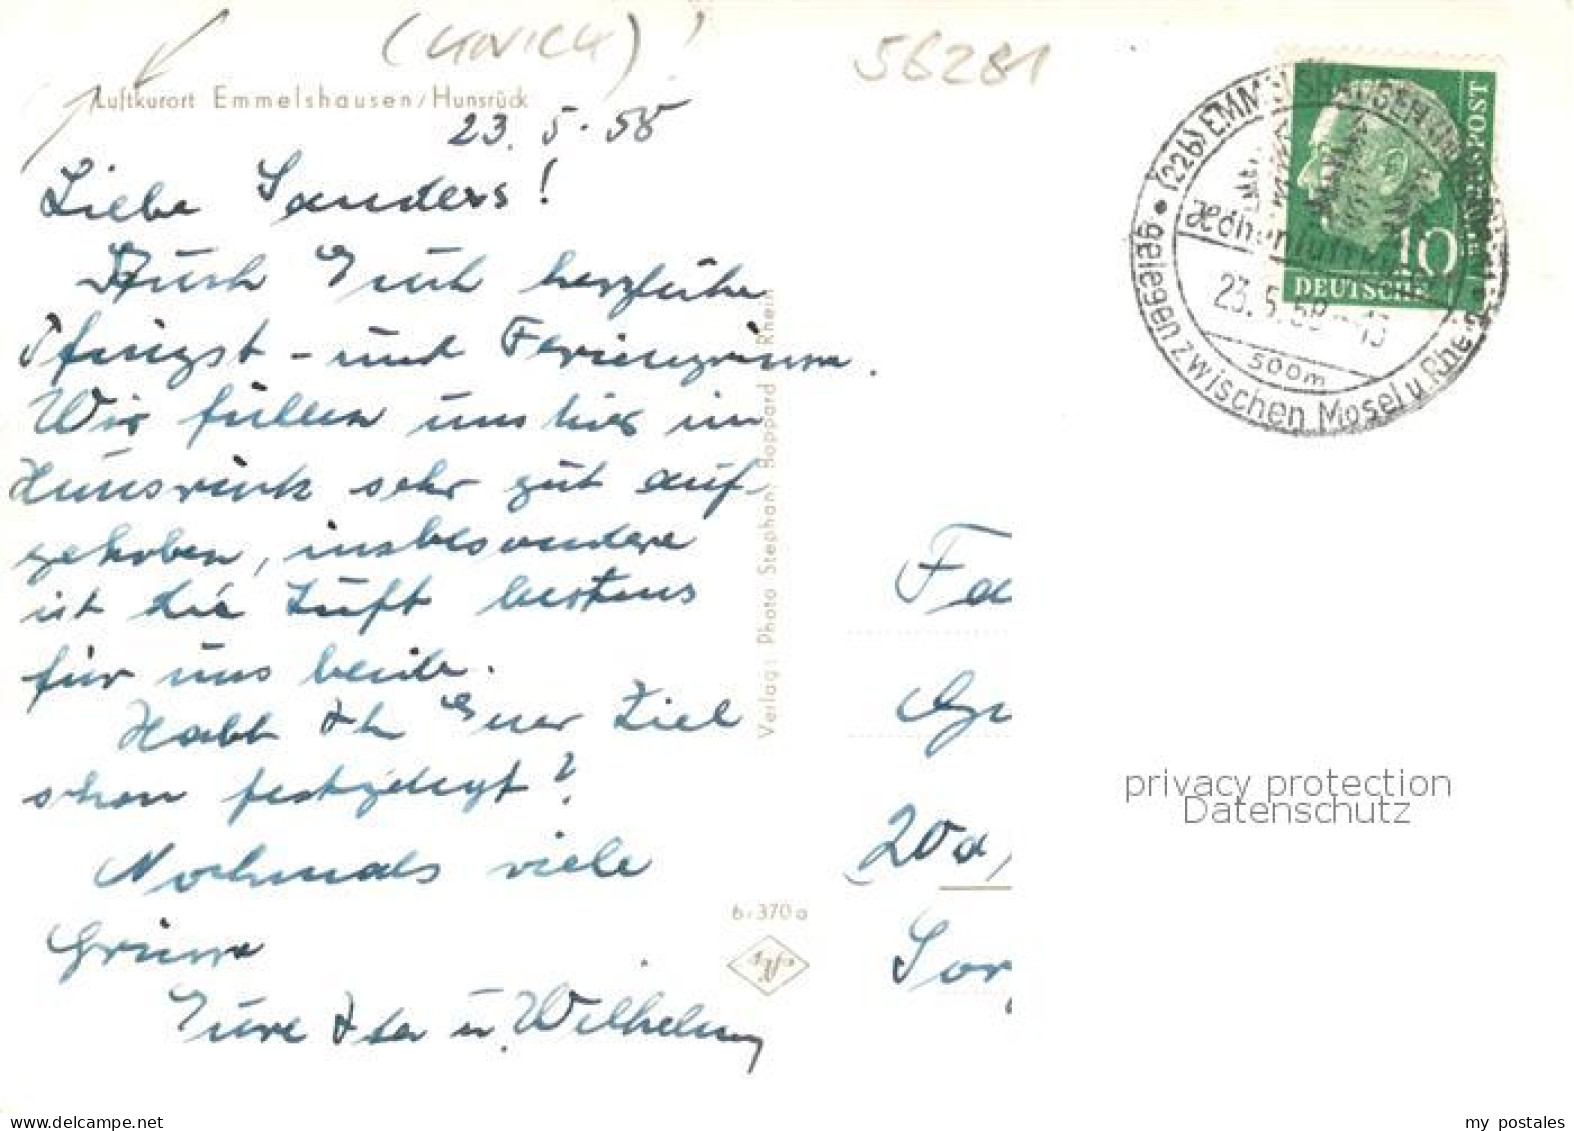 (GONICH)
56281
Luftkurort Emmelshausen/Hunsrück
23. 5. 58
Liebe Sanders!
Auch Euch herzliche
Pfingst- und Feriengrüsse.
Wir fühlen uns hier im
Hunsrück sehr gut auf-
gehoben, insbesondere
ist die Luft bestens
für uns beide.
Habt Ihr Euer Ziel
schon festgelegt?
Nochmals viele
Grüsse
Eure Ida u. Wilhelm
Verlag: Photo Stephan, Boppard Rhein
6/370a
(22b) EMMELSHAUSEN
Höhenluftkurort
23.5.58
500m
gelegen zwischen Mosel u. Rhein
10
DEUTSCHE
BUNDESPOST
Fa
(20a)
privacy protection
Datenschutz
www.delcampe.net
my_postales